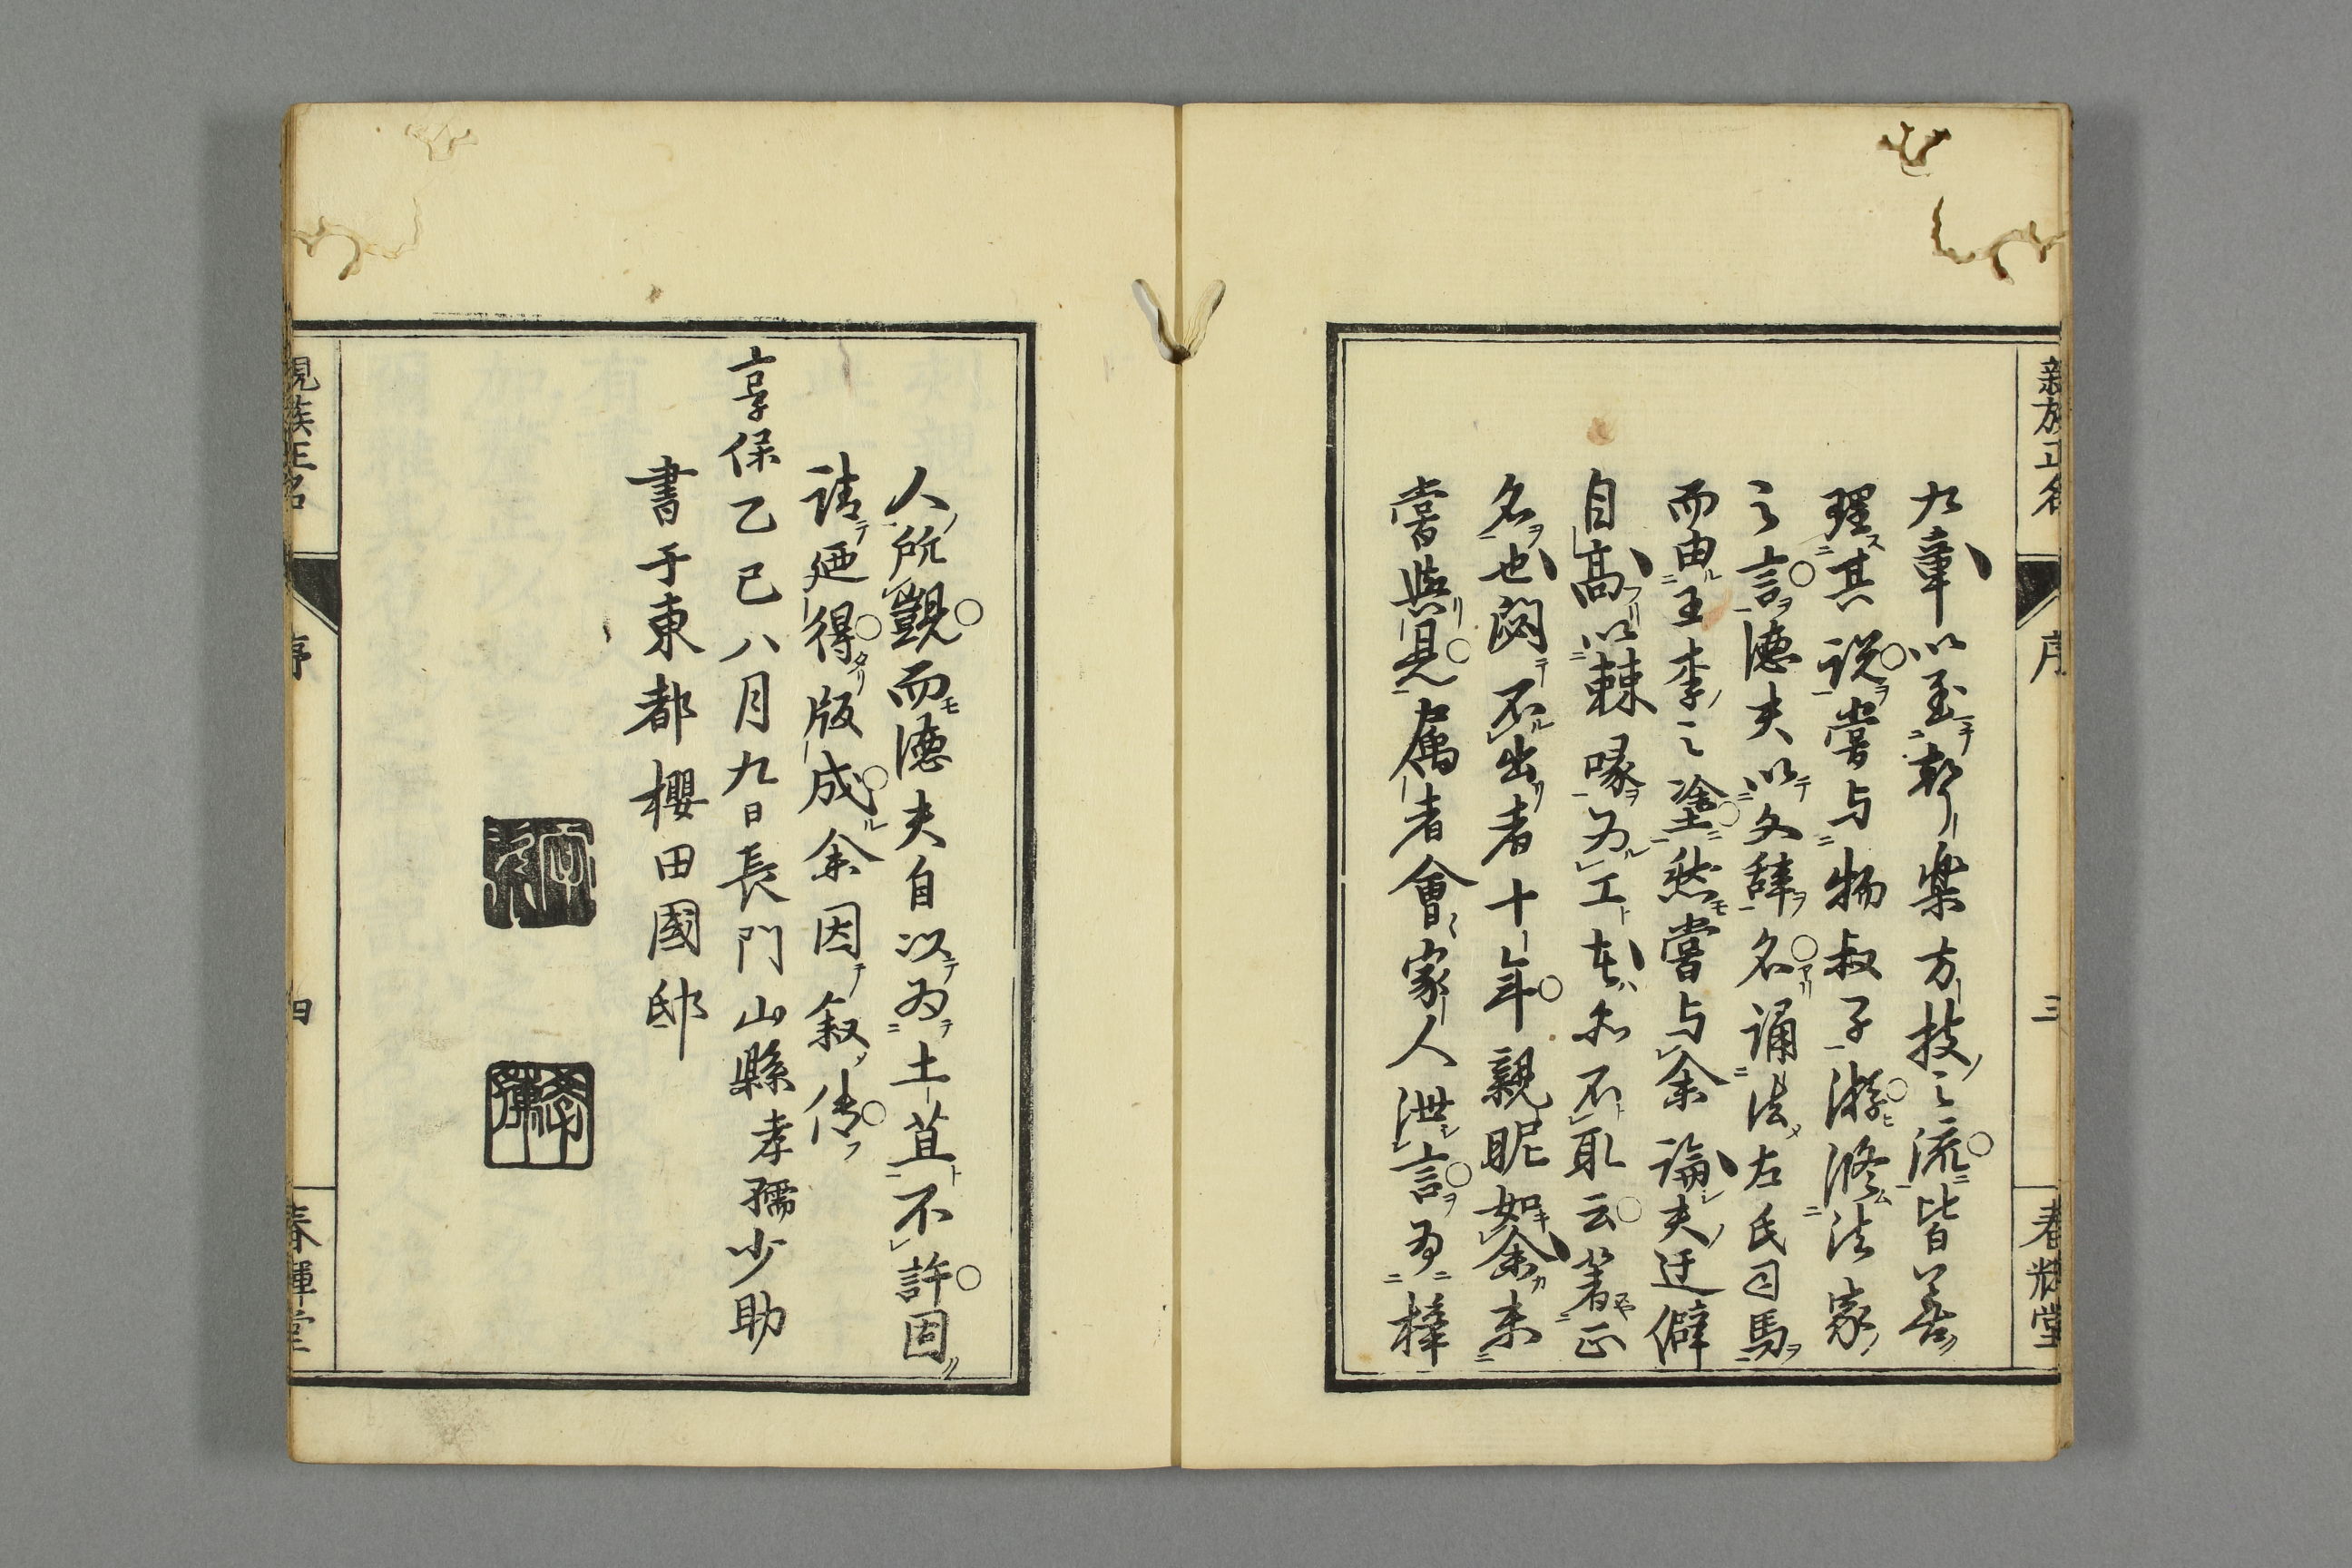 親族正名 序 三 春輝堂
九章以至軒樂方技之流皆善
理其説嘗与物叔子游修法家
之言德夫以文辞名誦法左氏司馬
而由王李之塗然嘗与余論夫迂僻
自高以棘喙为工者不取云著正
名也閟不出者十年親昵如余未
嘗與見属者會家人泄言为梓
人所覬而德夫自以为土苴不許固
請廼得版成余因叙傳
享保乙巳八月九日長門山縣孝孺少助
書于東都櫻田國邸
孝孺
親族正名 序 四 春輝堂